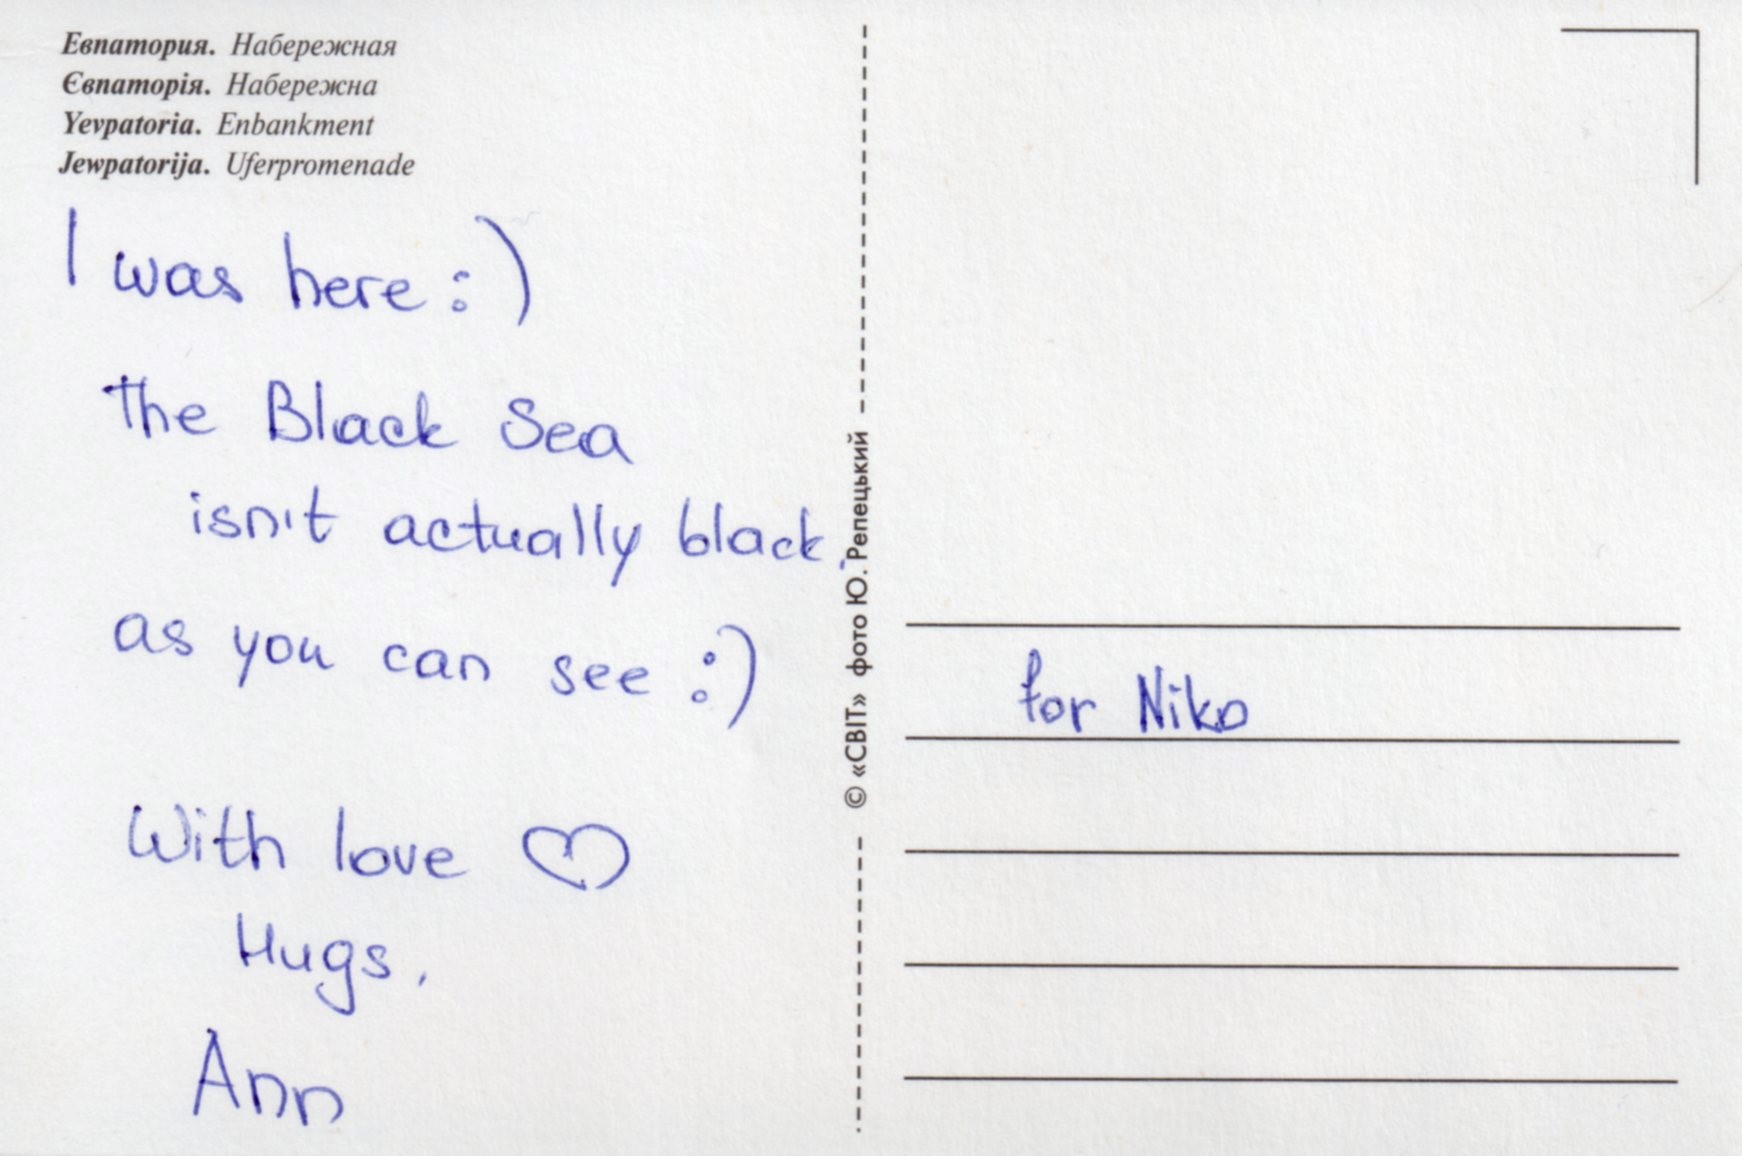 Евпатория. Набережная
Євпаторія. Набережна
Yevpatoria. Enbankment
Jewpatorija. Uferpromenade
I was here :)
The Black Sea
isn't actually black,
as you can see :)
With love ♡
Hugs,
Ann
© «СВІТ» фото Ю. Репецький
for Niko